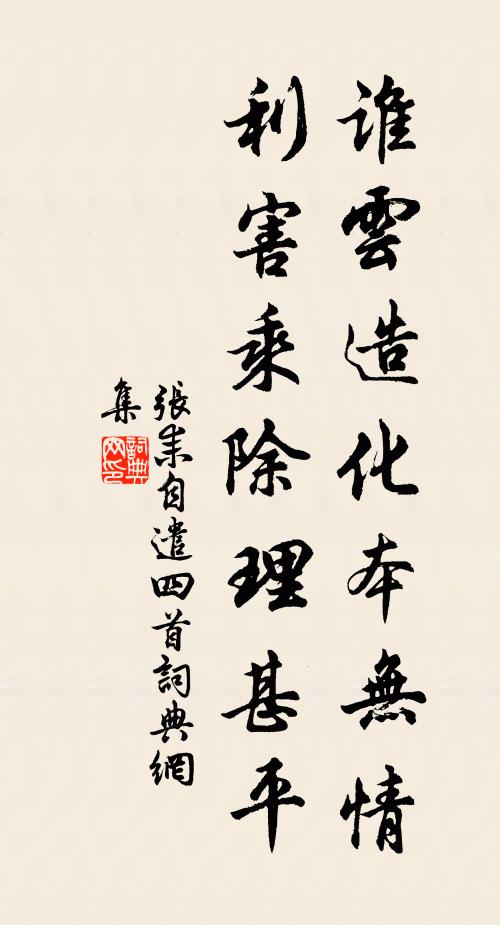 誰雲造化本無情
利害乘除理甚平
張耒自遣四首詞典網
集
詞典
网印